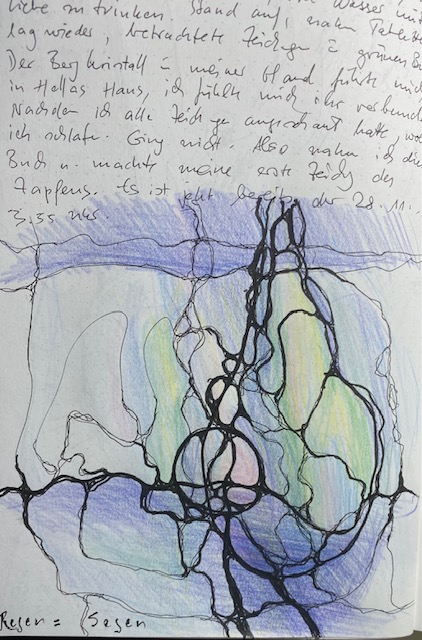 liebe zu trinken. Stand auf, nahm
lag wieder, betrachtete Zeichgen i grünen
Der Bergkristall i meiner Hand führte mich
in Hellas Haus, ich fühlte mich ihr
Nachdem ich alle Zeichgen angeschaut hatte,
ich schlafen. Ging nicht. Also nahm ich
Buch u. machte meine erste Zeichg des
Zapfens. Es ist jetzt bereits der 28.11.
3.35 Uhr.
Regen = Segen